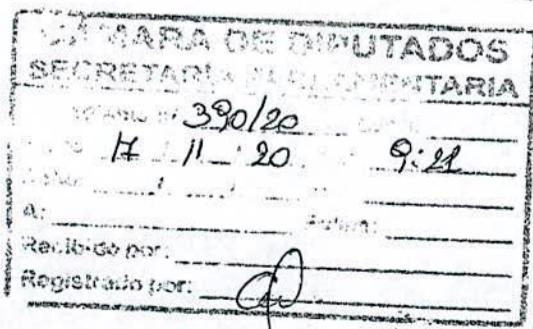 CÁMARA DE DIPUTADOS
SECRETARÍA PARLAMENTARIA
390/20
17 11 20 9:21
A:
Recibido por:
Registrado por: